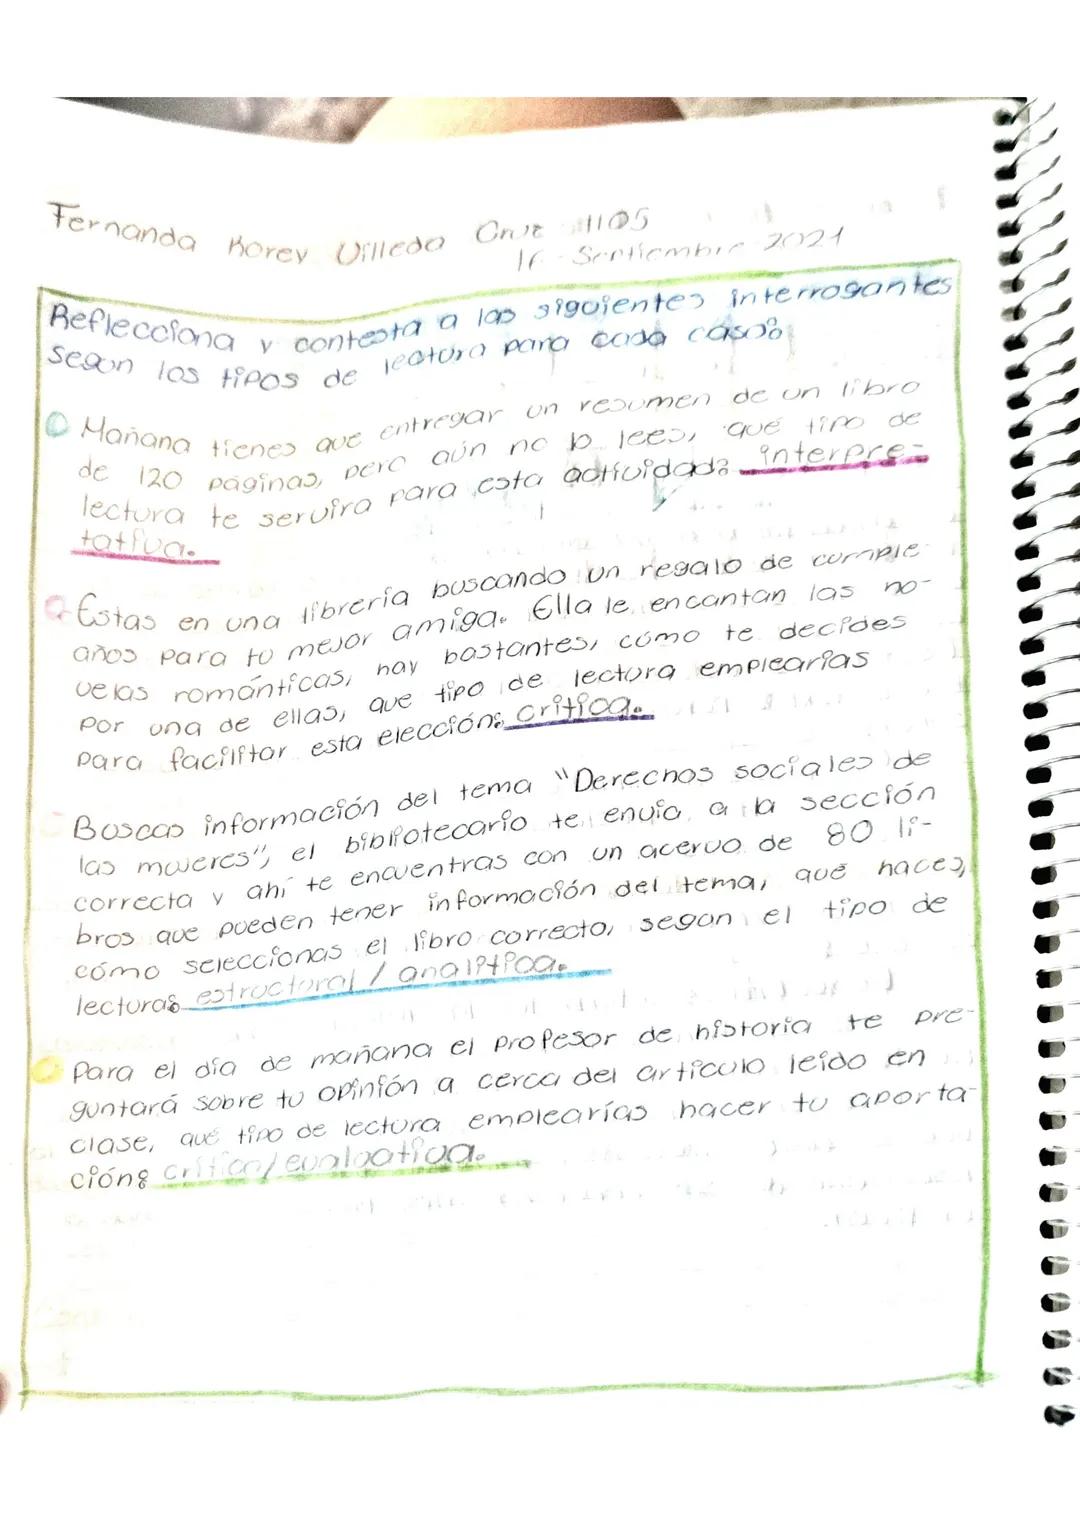 Fernanda Korey Villeda Cruz 1105
Septiembre 2021
Reflecciona y contesta a las siguientes interrogantes
segun los tipos de lectura para cada caso:
Mañana tienes que entregar un resumen de un libro
de 120 páginas, pero aún no lo lees, qué tipo de
lectura te servira para esta actividad: interpre-
tativa.
Estas en una librería buscando un regalo de cumple
años para tu mejor amiga. Ella le encantan las no-
velas románticas, hay bastantes, cómo te decides
por una de ellas, que tipo de lectura emplearías
para facilitar esta elección: critica.
Buscas información del tema "Derechos sociales de
las mujeres", el bibliotecario te envía a la sección
correcta y ahí te encuentras con un acervo de 80 li-
bros que pueden tener información del tema, qué haces,
cómo seleccionas el libro correcto, segun el tipo de
lectura: estructural / analitica.
Para el día de mañana el profesor de historia te pre-
guntará sobre tu opinión a cerca del articulo leído en
clase, qué tipo de lectura emplearías hacer tu aporta-
ción: critica/evaluativa.